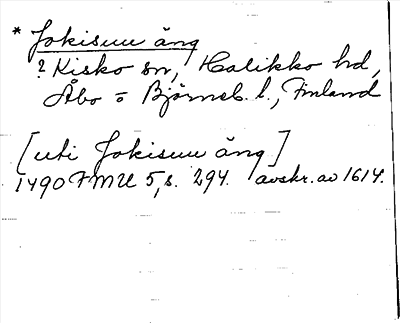 * Jokisuu äng
? Kisko sn, Halikko hd,
Åbo = Björneb. l., Finland
[uti Jokisuu äng]
1490 FMU 5, s. 294. avskr. av 1614.